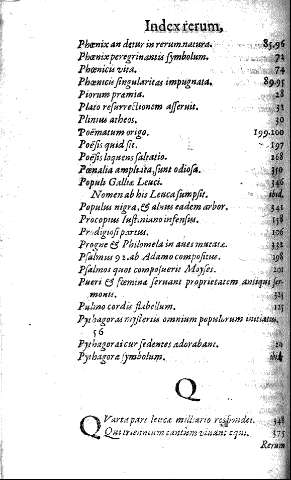 Index rerum,
Phœnix an detur in rerum natura. 85,96
Phœnix peregrinantis symbolum. 72
Phœnicis vita. 74
Phœnicis singularitas impugnata. 89,95
Piorum præmia. 28
Plato resurrectionem asseruit. 32
Plinius atheos. 30
Poëmatum origo. 199.200
Poësis quid sit. 197
Poësis loquens saltatio. 268
Pœnalia amplexa, sunt odiosa. 350
Populi Galliæ Leuci. 346
Nomen ab his Leuca sumpsit. ibid.
Populus nigra, & alnus eadem arbor. 341
Procopius Iustiniano infensus. 158
Prodigiosi partus. 106
Progne & Philomela in aues mutatæ. 332
Psalmus 92. ab Adamo compositus. 198
Psalmos quot composuerit Moyses. 201
Pueri & fœminæ seruant proprietatem antiqui ser-
monis. 325
Pulmo cordis flabellum. 125
Pythagoras mysteriis omnium populorum initiatus.
56
Pythagoraicur sedentes adorabant.
Pythagoræ symbolum. ibid.
Q
QVarta pars leucæ milliario respondet. 348
Qui triennium tantùm viuant equi. 375
Rerum